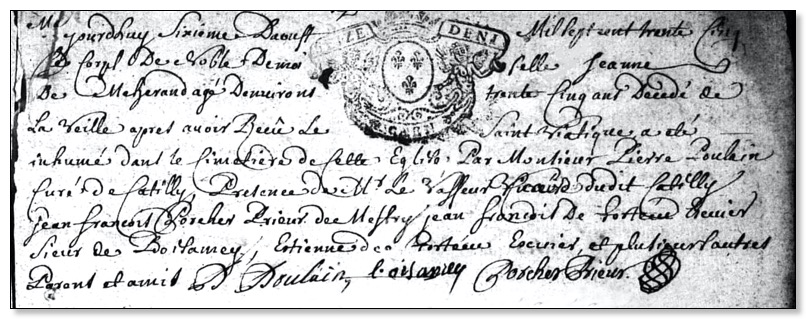 jourdhuy Sixiéme Daoust Mil sept cent trente Cinq
Le Corps De Noble Demoiselle Jeanne
De Meherand agé Denviront trente Cinq ans Decedé de
La Veille apres avoir Recû Le Saint Viatique, a eté
inhumé dans le Cimetiére de Cette Eglise Par Monsieur Pierre Poulain
Curé de Catilly, Presence de Mr. Le Vasseur Vicaire dudit Catilly
jean francois Porcher Prieur de Mestry jean francois De
Sieur de Boislamey, Etienne Ecuier, et plusieurs autres
Parent et amit Poulain boislamey Porcher Prieur
ZE DENI